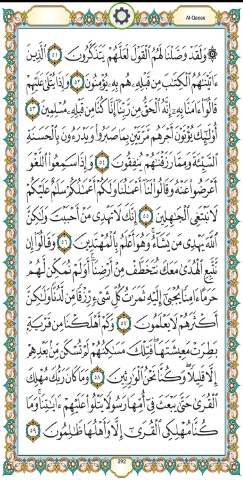 Al-Qasas
۞ وَلَقَدْ وَصَّلْنَا لَهُمُ الْقَوْلَ لَعَلَّهُمْ يَتَذَكَّرُونَ ٥١ الَّذِينَ
ءَاتَيْنَٰهُمُ الْكِتَٰبَ مِن قَبْلِهِۦ هُم بِهِۦ يُؤْمِنُونَ ٥٢ وَإِذَا يُتْلَىٰ عَلَيْهِمْ
قَالُوٓا۟ ءَامَنَّا بِهِۦٓ إِنَّهُ الْحَقُّ مِن رَّبِّنَآ إِنَّا كُنَّا مِن قَبْلِهِۦ مُسْلِمِينَ ٥٣
أُو۟لَٰٓئِكَ يُؤْتَوْنَ أَجْرَهُم مَّرَّتَيْنِ بِمَا صَبَرُوا۟ وَيَدْرَءُونَ بِالْحَسَنَةِ
السَّيِّئَةَ وَمِمَّا رَزَقْنَٰهُمْ يُنفِقُونَ ٥٤ وَإِذَا سَمِعُوا۟ اللَّغْوَ
أَعْرَضُوا۟ عَنْهُ وَقَالُوا۟ لَنَآ أَعْمَٰلُنَا وَلَكُمْ أَعْمَٰلُكُمْ سَلَٰمٌ عَلَيْكُمْ
لَا نَبْتَغِى الْجَٰهِلِينَ ٥٥ إِنَّكَ لَا تَهْدِى مَنْ أَحْبَبْتَ وَلَٰكِنَّ
اللَّهَ يَهْدِى مَن يَشَآءُ وَهُوَ أَعْلَمُ بِالْمُهْتَدِينَ ٥٦ وَقَالُوٓا۟ إِن
نَّتَّبِعِ الْهُدَىٰ مَعَكَ نُتَخَطَّفْ مِنْ أَرْضِنَآ أَوَلَمْ نُمَكِّن لَّهُمْ
حَرَمًا ءَامِنًا يُجْبَىٰٓ إِلَيْهِ ثَمَرَٰتُ كُلِّ شَىْءٍ رِّزْقًا مِّن لَّدُنَّا وَلَٰكِنَّ
أَكْثَرَهُمْ لَا يَعْلَمُونَ ٥٧ وَكَمْ أَهْلَكْنَا مِن قَرْيَةٍۭ
بَطِرَتْ مَعِيشَتَهَا فَتِلْكَ مَسَٰكِنُهُمْ لَمْ تُسْكَن مِّنۢ بَعْدِهِمْ
إِلَّا قَلِيلًا وَكُنَّا نَحْنُ الْوَٰرِثِينَ ٥٨ وَمَا كَانَ رَبُّكَ مُهْلِكَ
الْقُرَىٰ حَتَّىٰ يَبْعَثَ فِىٓ أُمِّهَا رَسُولًا يَتْلُوا۟ عَلَيْهِمْ ءَايَٰتِنَا وَمَا
كُنَّا مُهْلِكِى الْقُرَىٰٓ إِلَّا وَأَهْلُهَا ظَٰلِمُونَ ٥٩
392